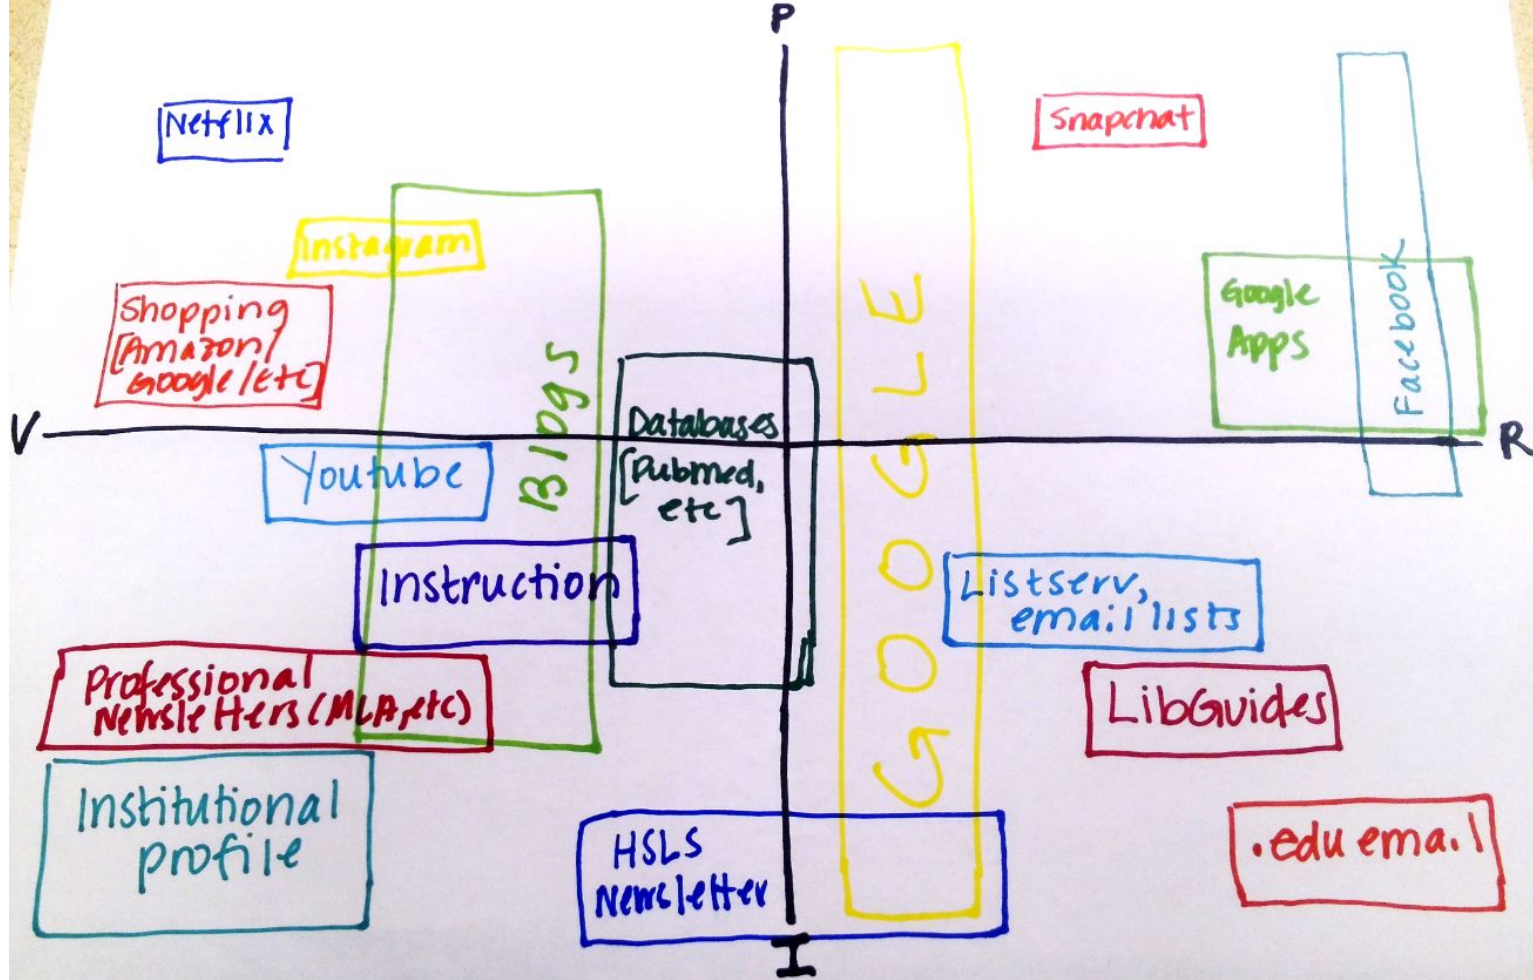 P
Netflix
Snapchat
Instagram
Shopping
[Amazon/
Google/etc]
Google
Apps
Facebook
Blogs
GOOGLE
V
R
Databases
[Pubmed,
etc]
Youtube
Instruction
Listserv,
email lists
Professional
Newsletters (MLA, etc)
LibGuides
Institutional
profile
HSLS
Newsletter
.edu email
I